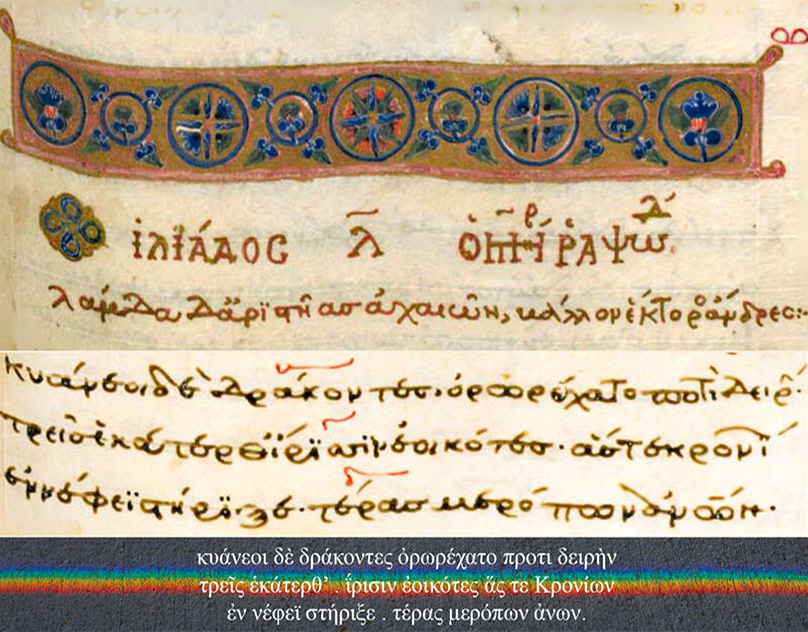 Β
ἰλϊάδος λ ὁμήρου ῥαψω δ
λάμβδα δ' ἀρϊστῆασ ἀχαιῶν, βάλλον ἕκτορος ἄνδρες:
κυάνεοι δὲ δράκοντεσ· ὀρωρέχατο ποτὶ δειρ
τρεῖσ ἑκάτερθ' ἴρϊσϊν ἐοικότεσ· ἅσ τε κρονί
ἐν νέφεϊ στήρϊξε· τέρασ μερόπων ἀνων·
κυάνεοι δὲ δράκοντες ὀρωρέχατο προτι δειρὴν
τρεῖς ἑκάτερθ’ . ἴρισιν ἐοικότες ἅς τε Κρονίων
ἐν νέφεϊ στήριξε . τέρας μερόπων ἀνων.